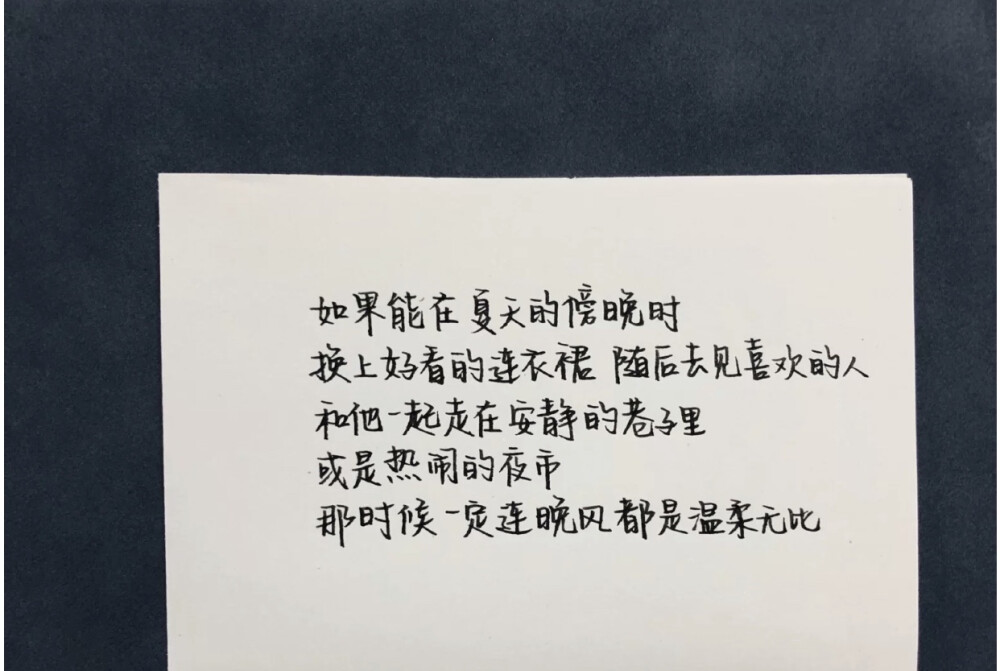 如果能在夏天的傍晚时
换上好看的连衣裙 随后去见喜欢的人
和他一起走在安静的巷子里
或是热闹的夜市
那时候一定连晚风都是温柔无比